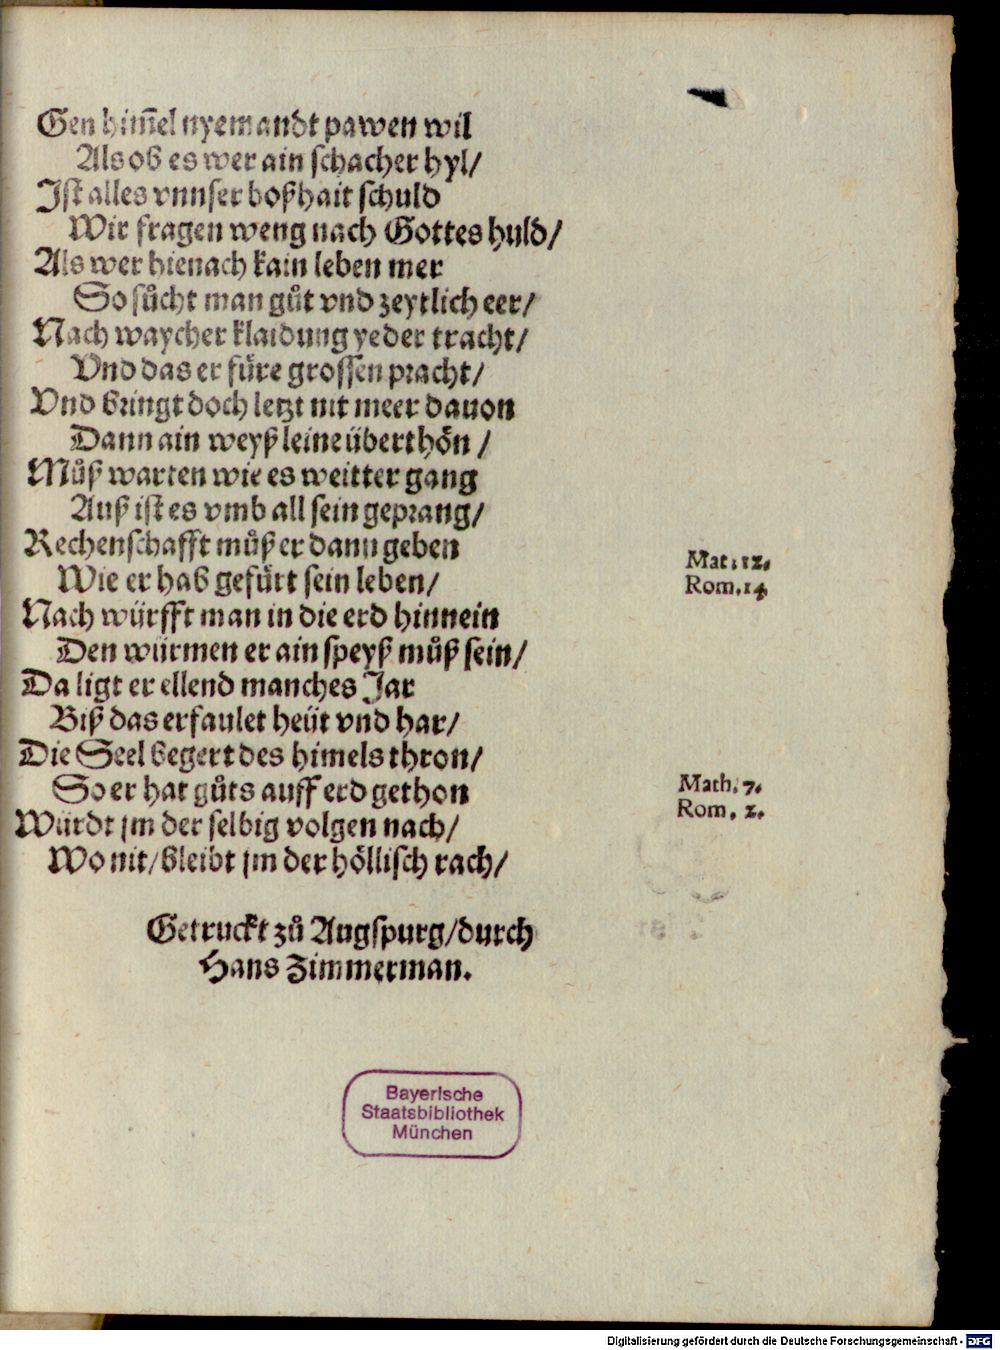 Gen him̅el nyemandt pawen wil
Als ob es wer ain schacher hyl/
Jst alles vnnser boßhait schuld
Wir fragen weng nach Gottes huld/
Als wer hienach kain leben mer
So sůcht man gůt vnd zeytlich eer/
Nach waycher klaidung yeder tracht/
Vnd das er füre grossen pracht/
Vnd bringt doch letzt nit meer dauon
Dann ain weyß leine überthön /
Můß warten wie es weitter gang
Auß ist es vmb all sein geprang/
Rechenschafft můß er dann geben
Mat. 12.
Wie er hab gefürt sein leben/
Rom. 14
Nach würfft man in die erd hinnein
Den würmen er ain speyß můß sein/
Da ligt er ellend manches Jar
Biß das er faulet heüt vnd har/
Die Seel begert des himels thron/
So er hat gůts auff erd gethon
Math. 7.
Rom. 2.
Würdt jm der selbig volgen nach/
Wo nit/ bleibt jm der höllisch rach/
Getruckt zů Augspurg/durch
Hans Zimmerman.
Bayerische
Staatsbibliothek
München
Digitalisierung gefördert durch die Deutsche Forschungsgemeinschaft - DFG